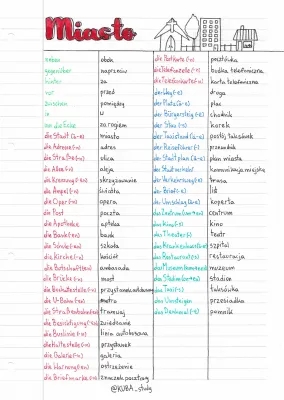 Miasto
neben obok
gegenüber naprzeciw
hinter za
vor przed
zwischen pomiędzy
in w
um die Ecke za rogiem
die Stadt (ä-e) miasto
die Adresse (-n) adres
die Straße (-n) ulica
die Allee (-n) aleja
die Kreuzung (-en) skrzyżowanie
die Ampel (-n) światła
die Oper (-n) opera
die Post poczta
die Apotheke apteka
die Bank (-en) bank
die Schule (-n) szkoła
die Kirche (-n) kościół
die Botschaft (-en) ambasada
die Brücke (-n) most
die Bushaltestelle (-n) przystanek autobusowy
die U-Bahn (-en) metro
die Straßenbahn (-en) tramwaj
die Besichtigung (-en) zwiedzanie
die Buslinie (-n) linia autobusowa
die Haltestelle (-n) przystanek
die Galerie (-n) galeria
die Warnung (-en) ostrzeżenie
die Briefmarke (-n) znaczek pocztowy
die Postkarte (-n) pocztówka
die Telefonzelle (-n) budka telefoniczna
die Telefonkarte (-n) karta telefoniczna
der Weg (-e) droga
der Platz (ä-e) plac
der Bürgersteig (-e) chodnik
der Stau (-s) korek
der Taxistand (ä-e) postój taksówek
der Reiseführer (-) przewodnik
der Stadtplan (ä-e) plan miasta
der Stadtverkehr komunikacja miejska
trasa
der Brief (-e) list
der Umschlag (ä-e) koperta
das Zentrum centrum
das Kino (-s) kino
das Theater (-) teatr
das Krankenhaus szpital
das Restaurant (-s) restauracja
das Museum muzeum
das Stadion stadion
das Taxi (-s) taksówka
das Umsteigen przesiadka
das Denkmal pomnik
@KUBA_study